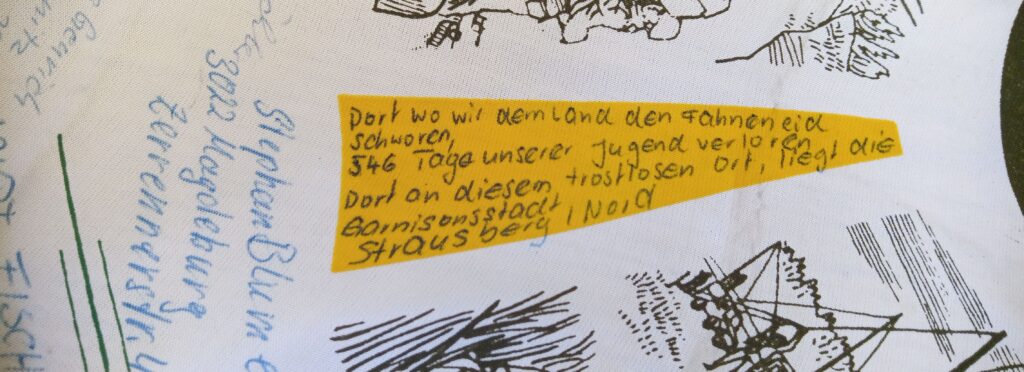 Dort wo wir dem Land den Fahneneid
schworen,
546 Tage unserer Jugend verloren
Dort an diesem, trostlosen Ort, liegt die
Garnisonsstadt
Strausberg, Nord
Stephan Blum
3022 Magdeburg